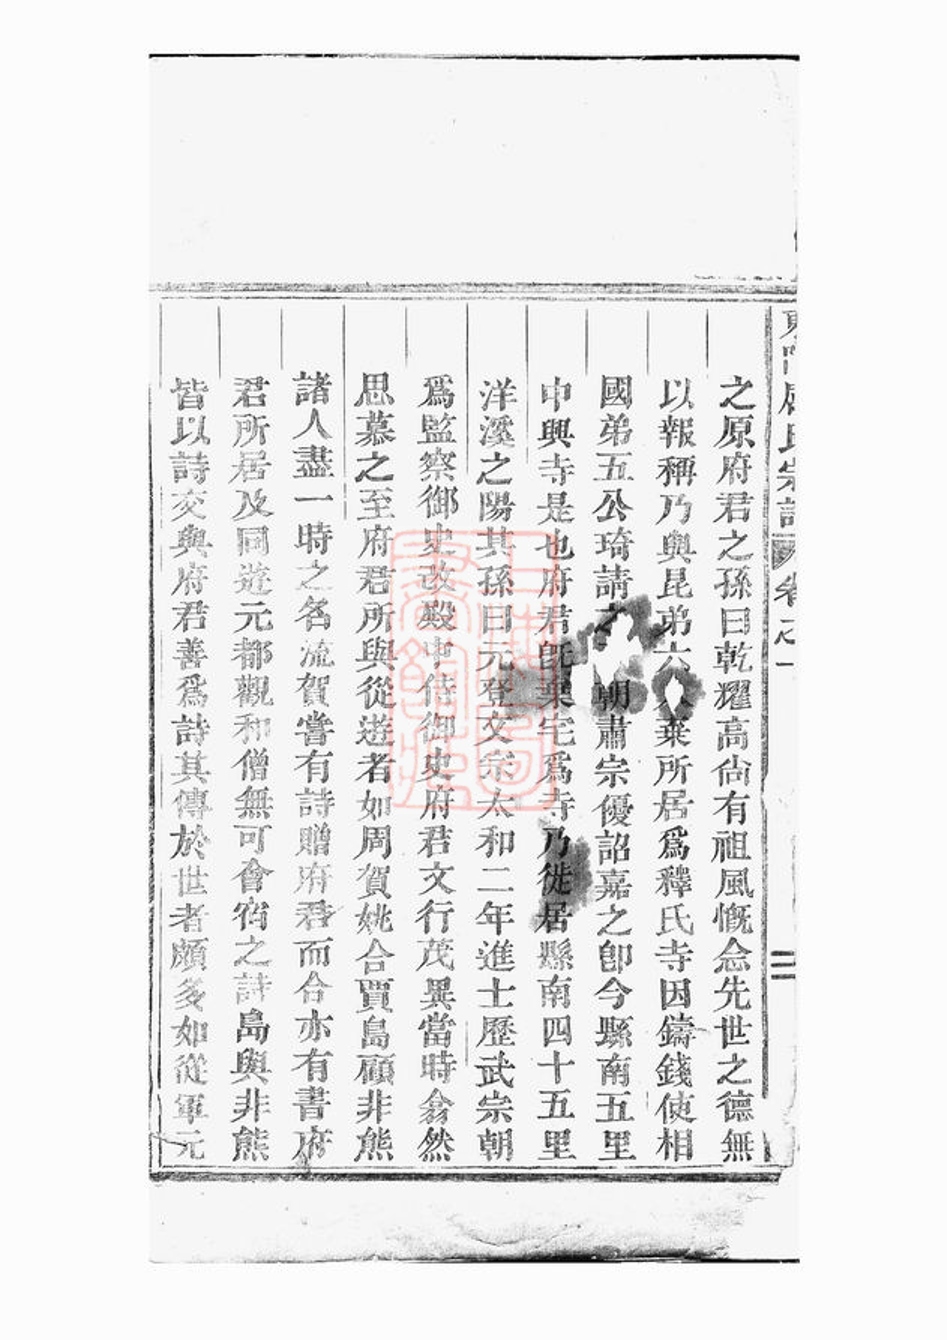 之原府君之孫曰乾耀高尙有祖風慨念先世之德無
以報稱乃與昆弟六人棄所居爲釋氏寺因鑄錢使相
國弟五公琦請之朝肅宗優詔嘉之卽今縣南五里
中興寺是也府君旣棄宅爲寺乃徙居縣南四十五里
洋溪之陽其孫曰元登文宗太和二年進士歷武宗朝
爲監察御史改殿中侍御史府君文行茂異當時翕然
思慕之至府君所與從遊者如周賀姚合賈島顧非熊
諸人盡一時之名流賀嘗有詩贈府君而合亦有書府
君所居及同遊元都觀和僧無可會宿之詩島與非熊
皆以詩交與府君善爲詩其傳於世者頗多如從軍元
氏宗譜 卷之一
二